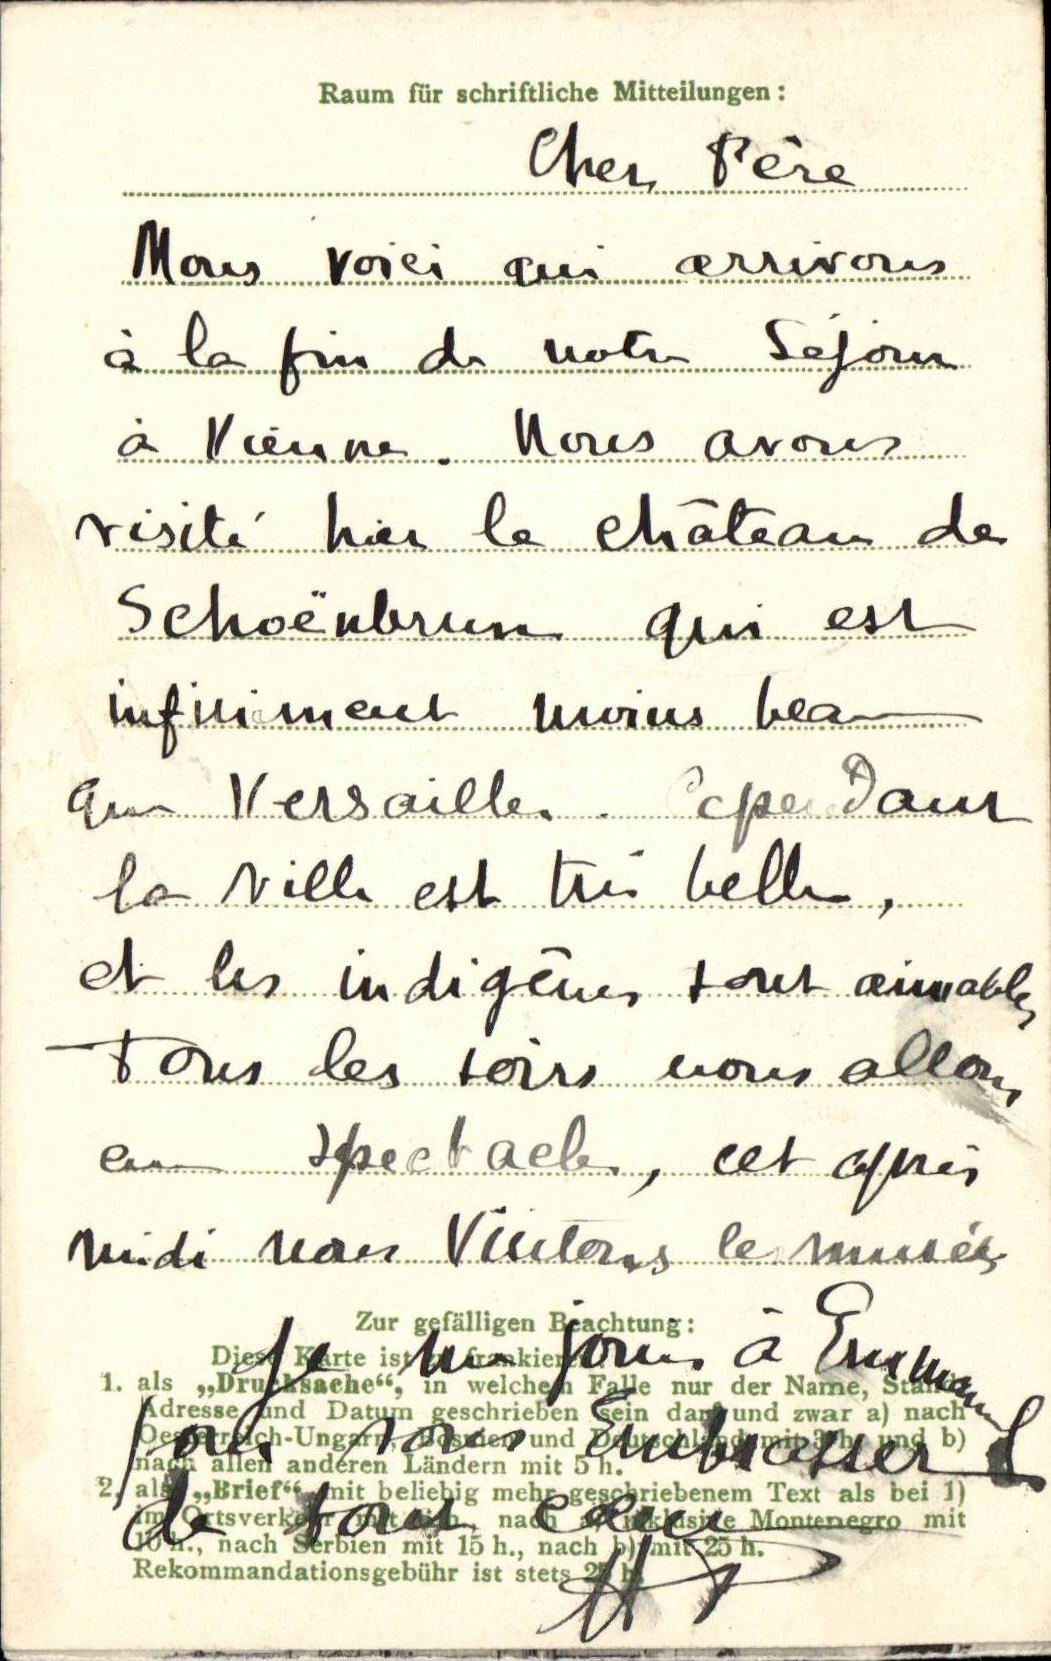 Raum für schriftliche Mitteilungen:
Cher Père
Nous voici qui arrivons
à la fin de notre Séjour
à Vienne. Nous avons
visité hier le château de
Schoënbrunn qui est
infiniment moins beau
que Versailles. Cependant
la ville est très belle,
et les indigênes sont aimables
Tous les soirs nous allons
au spectacle, cet après
midi nous Visitons les musées
Zur gefälligen Beachtung:
Je me joins à Emmanuel
Diese Karte ist zu frankieren:
1. als „Drucksache“, in welchem Falle nur der Name, Stand,
Adresse und Datum geschrieben sein darf und zwar a) nach
pour vous Embrasser
Oesterreich-Ungarn, Bosnien und Deutschland mit 3 h. und b)
nach allen anderen Ländern mit 5 h.
2. als „Brief“, mit beliebig mehr geschriebenem Text als bei 1)
de tout cœur
im Ortsverkehr mit h., nach a) inklusive Montenegro mit
10 h., nach Serbien mit 15 h., nach b) mit 25 h.
Rekommandationsgebühr ist stets 25 h.